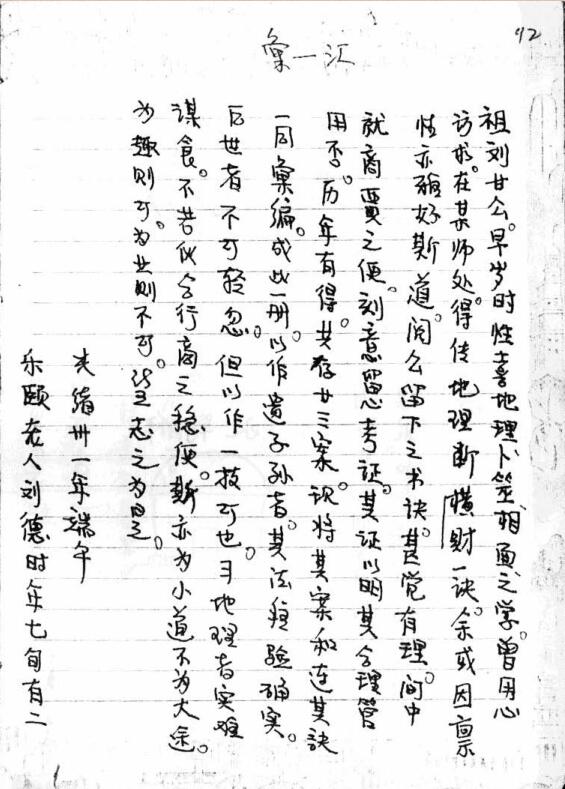 92
彙一汇
祖刘廿公。早岁时性喜地理卜筮相面之学。曾用心
访求。在某师处得传地理断横财一诀。余或因禀
性亦殊好斯道。阅公留下之书诀。甚觉有理。间中
就商贾之便。刻意留心考证。其证以明其合理管
用否。历年有得。共存廿三案。现将其案和连其诀
一同彙编。成此一册。以作遗子孙者。其法经验确实。
后世者不可轻忽。但以作一技可也。习地理者实难
谋食。不若似合行商之稳便。斯亦为小道不为大途。
为趣则可。为业则不可。望志之为是。
光绪卅一年端午
乐颐老人刘德时年七旬有二